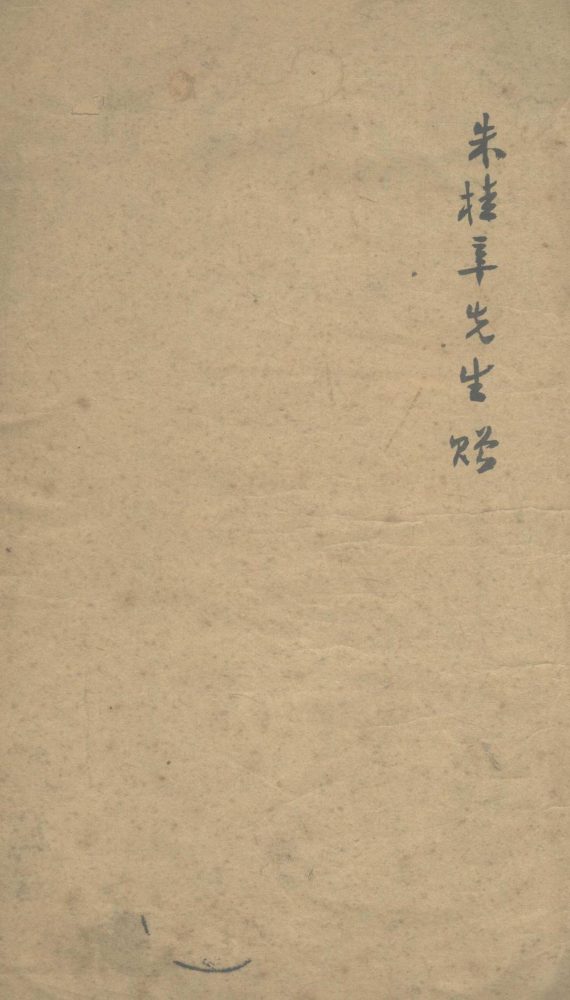 朱桂辛先生赠